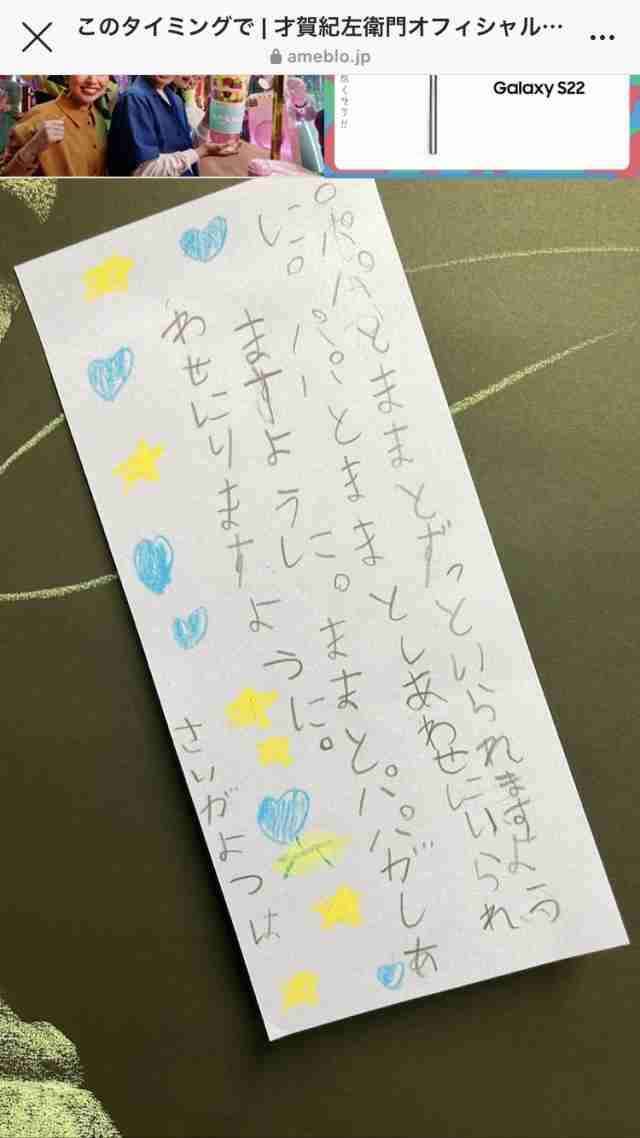 このタイミングで | 才賀紀左衛門オフィシャル…
ameblo.jp
Galaxy S22
パパとままとずっといられますよう
に。パパーとままとしあわせにいられ
ますように。ままとパパがしあ
わせにりますように。
さいがよつは